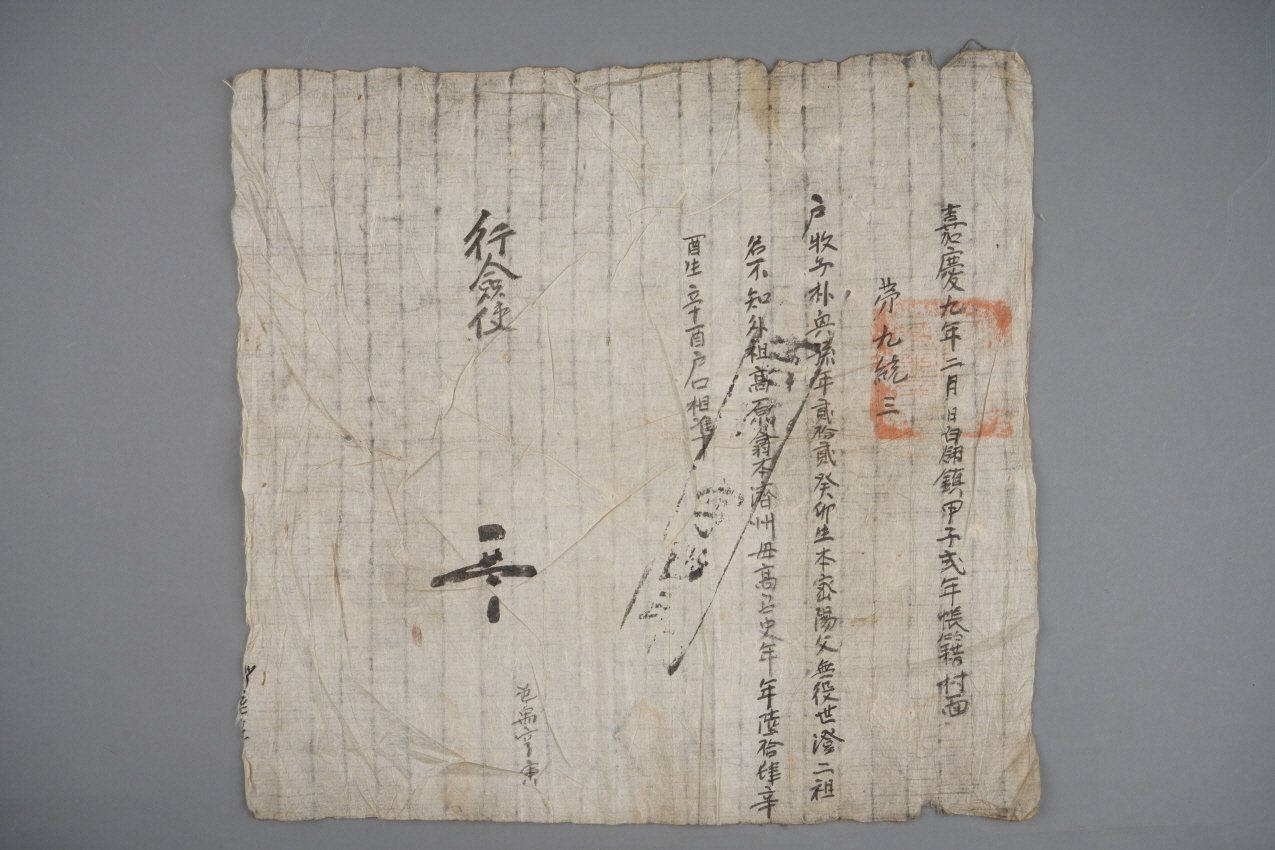 嘉慶九年二月 日白翎鎮甲子式年帳籍村面
第九統三
戶牧子朴興孫年貳拾貳癸卯生本密陽父無役世澄二祖
名不知外祖高原翁本濟州母高召史年年陸拾肆辛
酉生辛酉戶口相準
行僉使